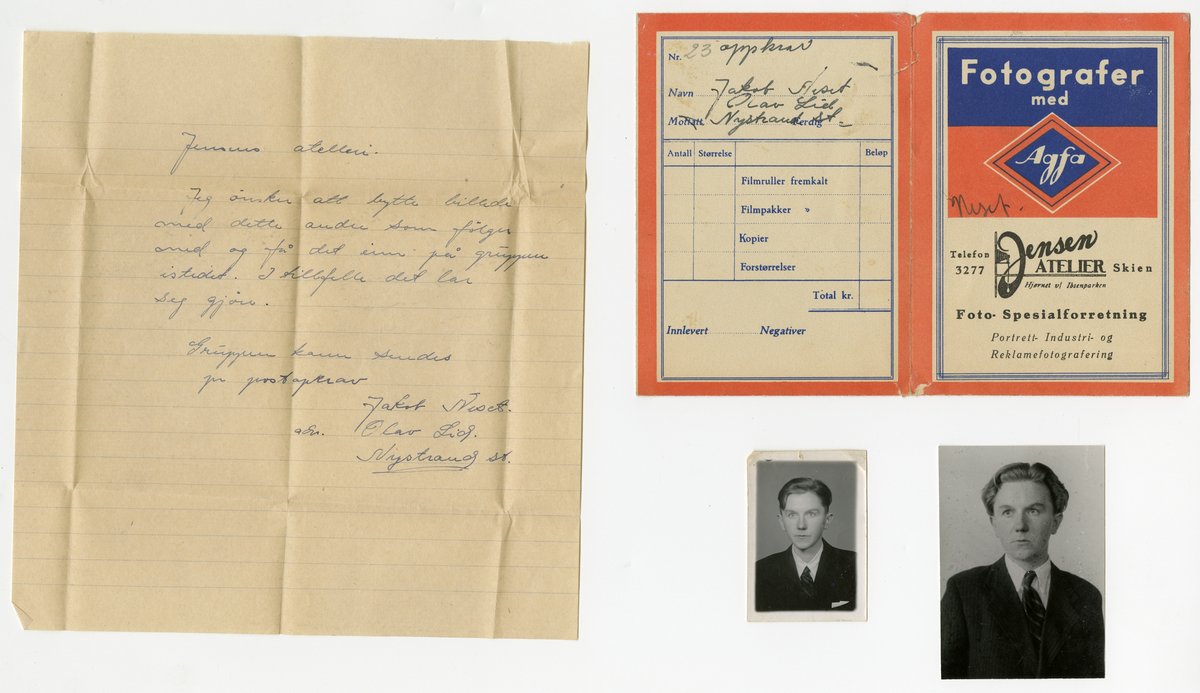 Jensens atelleri.
Jeg ønsker att bytte billede
med dette andre som følger
med og få det inn på gruppen
istedet. I tillfelle det lar
seg gjøre.
Gruppen kann sendes
pr postopkrav
Jakob Neset.
adr. Olav Lid.
Nystrand st.
Nr. 23 oppkrav
Navn Jakob Neset
Olav Lid
Mottatt Nystrand st. Ferdig
Antall Størrelse Beløp
Filmruller fremkalt
Filmpakker »
Kopier
Forstørrelser
Total kr.
Innlevert Negativer
Fotografer
med
Agfa
Neset.
Telefon
3277
Jensen
ATELIER Skien
Hjørnet v/ Ibsenparken
Foto- Spesialforretning
Portrett- Industri- og
Reklamefotografering